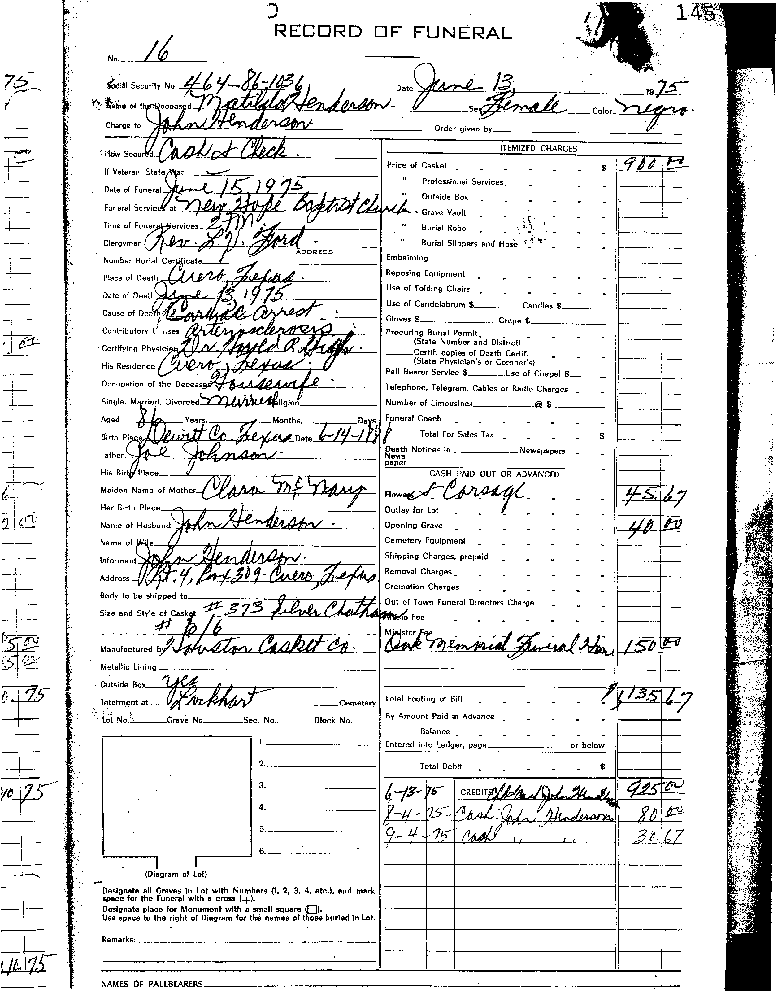 145
RECORD OF FUNERAL
No. 16
Social Security No. 464-86-1036 Date June 13 1975
Name of the Deceased Matilda Henderson Sex Female Color Negro
Charge to John Henderson Order given by
How Secured Cash & Check
If Veteran State War
Date of Funeral June 15, 1975
Funeral Services at New Hope Baptist Church
Time of Funeral Services 2 PM
Clergyman Rev. L. V. Ford
ADDRESS
Number Burial Certificate
Place of Death Cuero, Texas
Date of Death June 13, 1975
Cause of Death Cardiac Arrest
Contributory Causes arteriosclerosis
Certifying Physician Dr.
His Residence Cuero, Texas
Occupation of the Deceased Housewife
Single, Married, Divorced Married Religion
Aged 86 Years Months, Days
Birth Place Dewitt Co Texas Date 6-14-1888
Father Joe Johnson
His Birth Place
Maiden Name of Mother Clara McNary
Her Birth Place
Name of Husband John Henderson
Name of Wife
Informant John Henderson
Address Rt. 4, Box 309 Cuero, Texas
Body to be shipped to
Size and Style of Casket # 373 Silver Chatham
Manufactured by Houston Casket Co.
Metallic Lining
Outside Box yes
Interment at Lockhart Cemetery
Lot No. Grave No. Sec. No. Block No.
1.
2.
3.
4.
5.
6.
(Diagram of Lot)
Designate all Graves in Lot with Numbers (1, 2, 3, 4, etc.), and mark
space for the Funeral with a cross (+).
Designate place for Monument with a small square (□).
Use space to the right of Diagram for the names of those buried in Lot.
Remarks:
NAMES OF PALLBEARERS
ITEMIZED CHARGES
Price of Casket $ 900 00
" Professional Services
" Outside Box
" Grave Vault
" Burial Robe
" Burial Slippers and Hose
Embalming
Reposing Equipment
Use of Folding Chairs
Use of Candelabrum $ Candles $
Gloves $ Crepe $
Procuring Burial Permit
(State Number and District)
Certif. copies of Death Certif.
(State Physician's or Coroner's)
Pall Bearer Service $ Use of Chapel $
Telephone, Telegram, Cables or Radio Charges
Number of Limousines @ $
Funeral Coach
Total For Sales Tax $
Death Notices in Newspapers
News
paper
CASH PAID OUT OR ADVANCED
Flowers & Corsage 45 67
Outlay for Lot
Opening Grave 40 00
Cemetery Equipment
Shipping Charges, prepaid
Removal Charges
Cremation Charges
Out of Town Funeral Directors Charge
Minister Fee
Memorial Funeral 150 00
Total Footing of Bill $ 1135 67
By Amount Paid in Advance
Balance
Entered into Ledger, page or below
Total Debit $
6-13-75 CREDITS John 925 00
8-4-75 Cash John Henderson 80 00
9-4-75 Cash " " 30 67